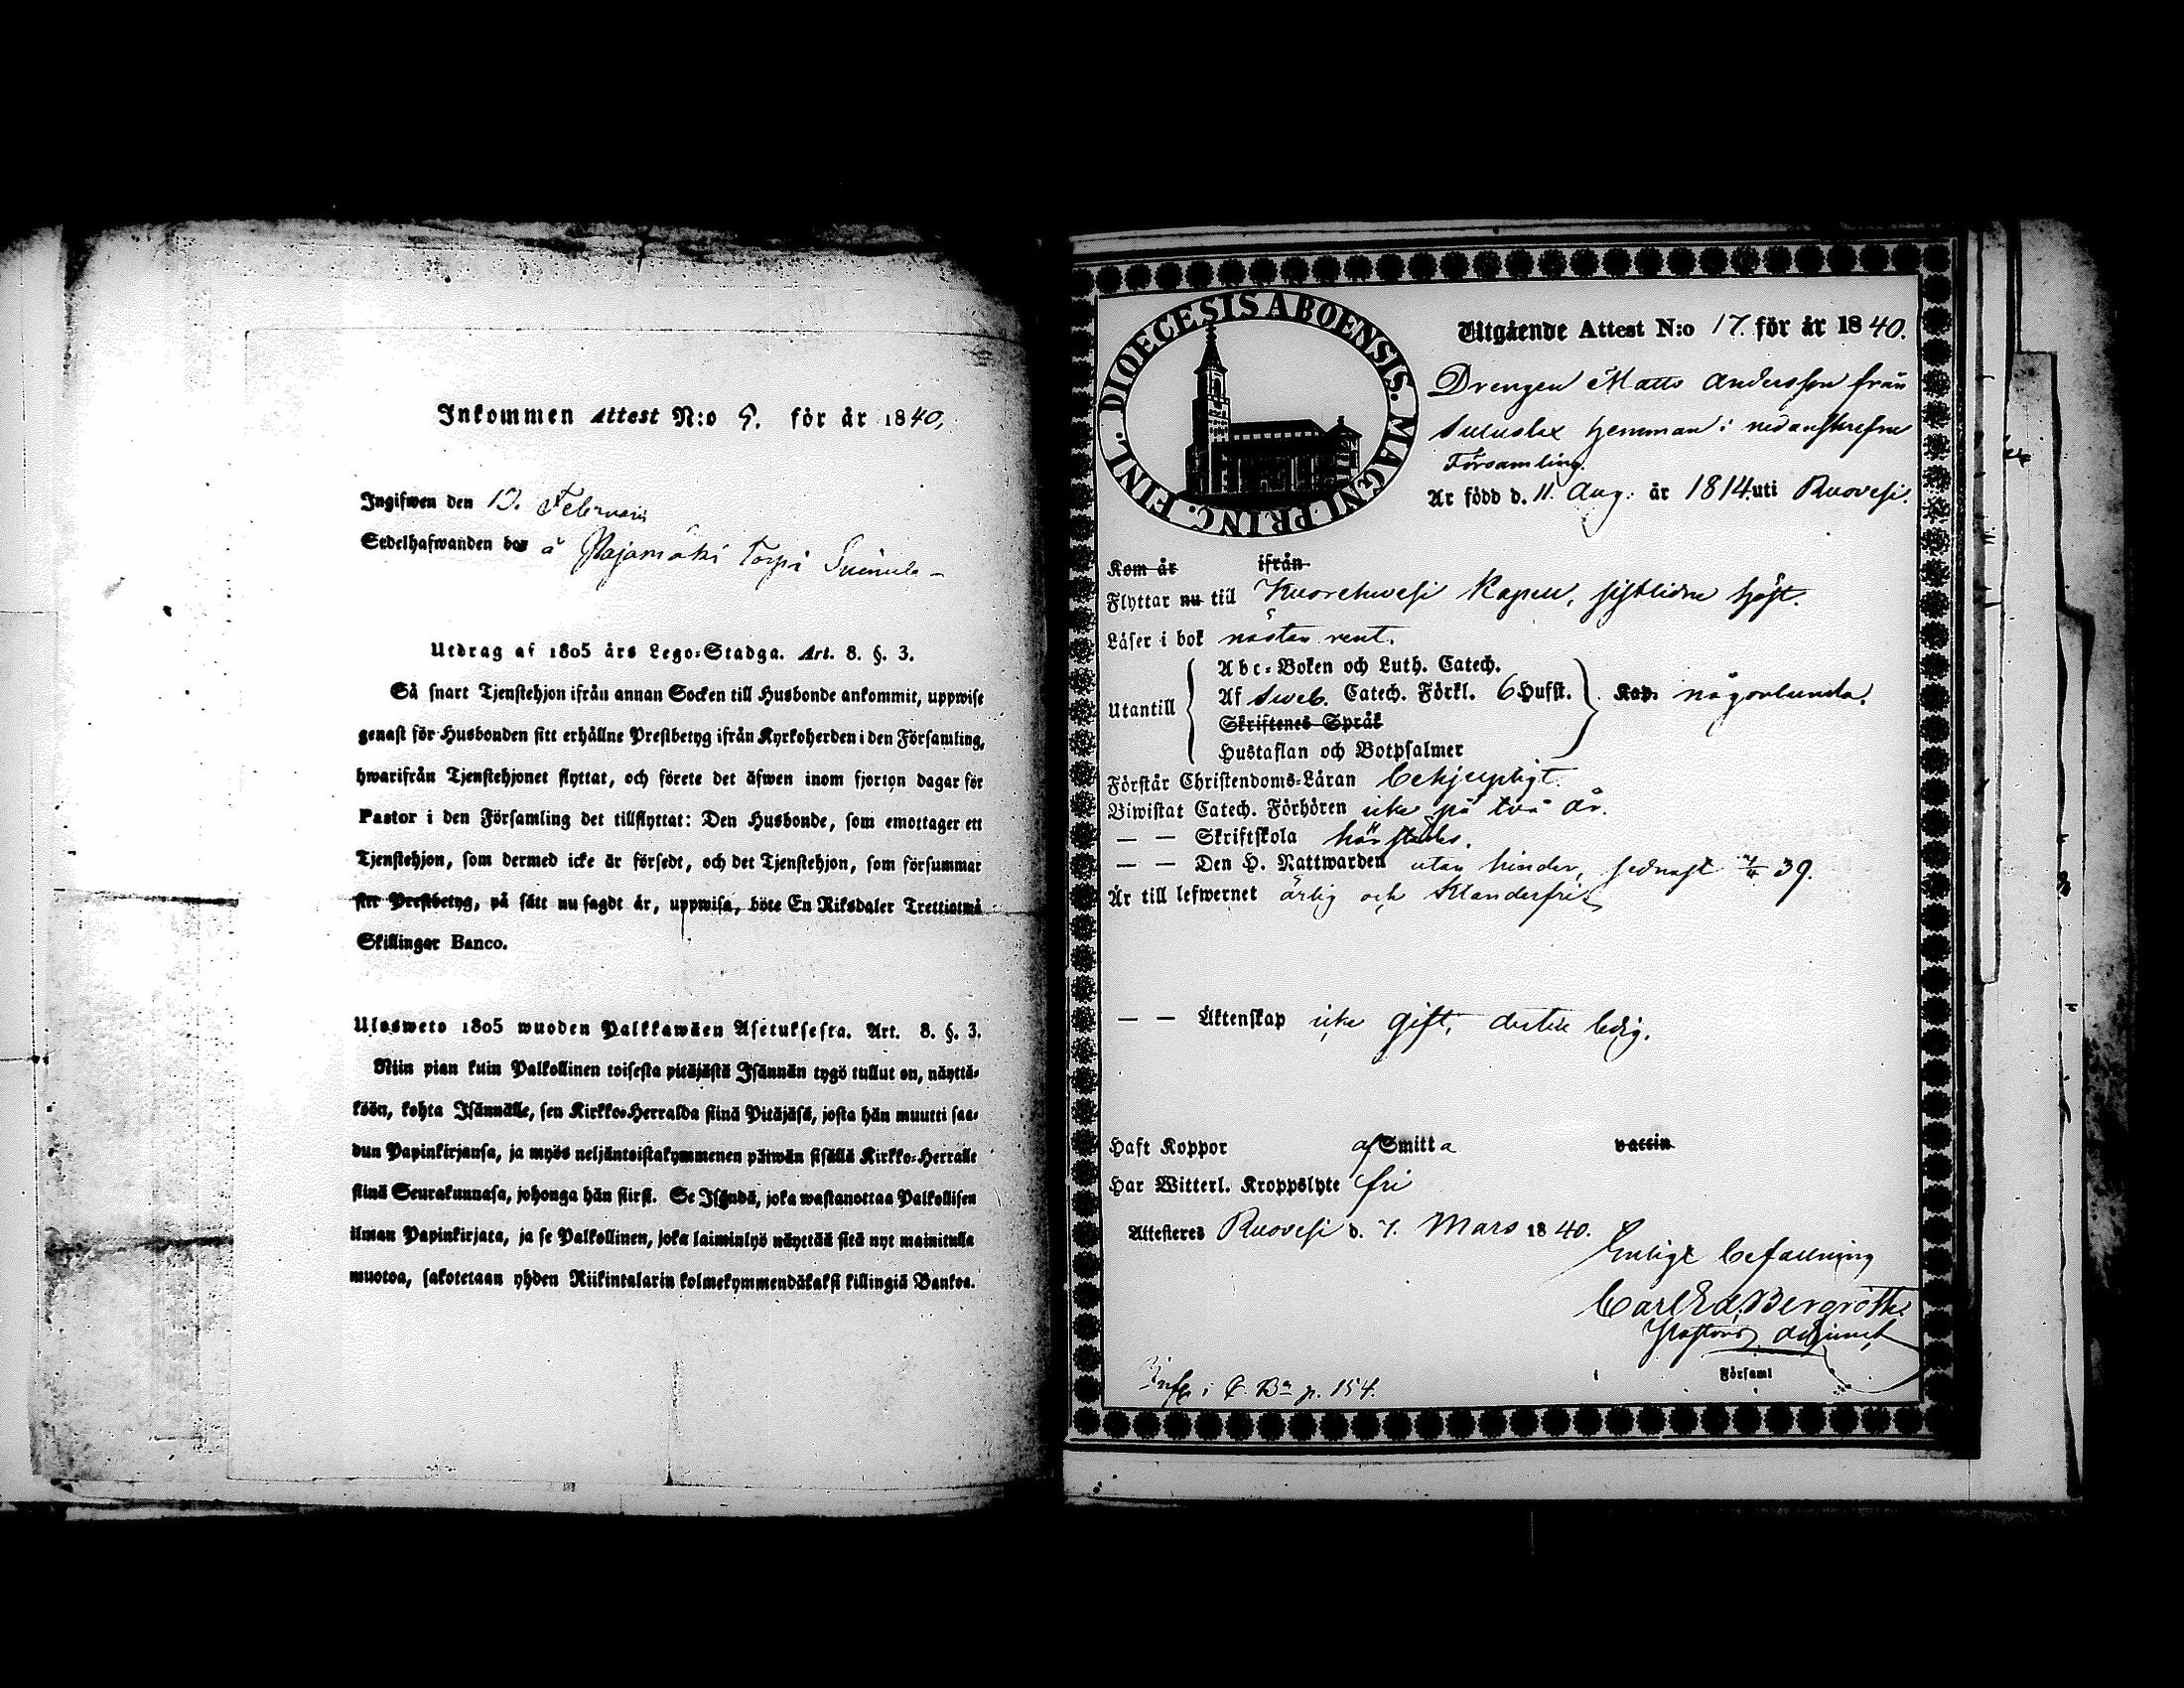 Inkommen Attest N:o 9. för år 1840.
Ingifwen den 13. Februarii
Sedelhafwanden bor å Pajamäki Torp i
Utdrag af 1805 års Lego-Stadga. Art. 8. §. 3.
Så snart Tjenstehjon ifrån annan Socken till Husbonde ankommit, uppwise
genast för Husbonden sitt erhållne Prestbetyg ifrån Kyrkoherden i den Församling,
hwarifrån Tjenstehjonet flyttat, och förete det äfwen inom fjorton dagar för
Pastor i den Församling det tillflyttat: Den Husbonde, som emottager ett
Tjenstehjon, som dermed icke är försedt, och det Tjenstehjon, som försummar
sitt Prestbetyg, på sätt nu sagdt är, uppwisa, böte En Riksdaler Trettiotwå
Skillingar Banco.
Ulosweto 1805 wuoden Palkkawäen Asetuksesta. Art. 8. §. 3.
Niin pian kuin Palkollinen toisesta pitäjästä Isännän tygö tullut on, näyttä-
köön, kohta Isännälle, sen Kirkko-Herralda siinä Pitäjäsä, josta hän muutti saa-
dun Papinkirjansa, ja myös neljäntoistakymmenen päiwän sisällä Kirkko-Herralle
siinä Seurakunnasa, johonga hän siirsi. Se Isändä, joka wastanottaa Palkollisen
ilman Papinkirjata, ja se Palkollinen, joka laiminlyö näyttää sitä nyt mainitulla
muotoa, sakotetaan yhden Riikintalarin kolmekymmendäkaksi killingiä Bankoa.
DIOECESIS ABOENSIS. MAGNI PRINC. FINL.
Utgående Attest N:o 17. för år 1840.
Drengen Matts Andersson från
hemman i nedanskrefne
Församling.
Är född d. 11. Aug: år 1814 uti Ruovesi.
Kom år ifrån
Flyttar nu till Kuorehvesi Kapell, sistlidne höst.
Läser i bok nästan rent.
Utantill
Abc-Boken och Luth. Catech.
Af Sweb. Catech. Förkl. 6 Hufst.
Skriftenes Språk
Hustaflan och Botpsalmer
Kap. någorlunda.
Förstår Christendoms-Läran behjelpligt.
Biwistat Catech. Förhören icke på två år.
— — Skriftskola härstädes.
— — Den H. Nattwarden utan hinder, sednast 39.
Är till lefwernet ärlig och klanderfri
— — Äktenskap icke gift, dertill ledig.
Haft Koppor af Smitta vaccin
Har Witterl. Kroppslyte fri
Attesteres Ruovesi d. 7. Mars 1840.
Enligt befallning
Carl Ed. Bergroth.
Pastors adjunct
Församl
Inf. i C. Bn p. 154.